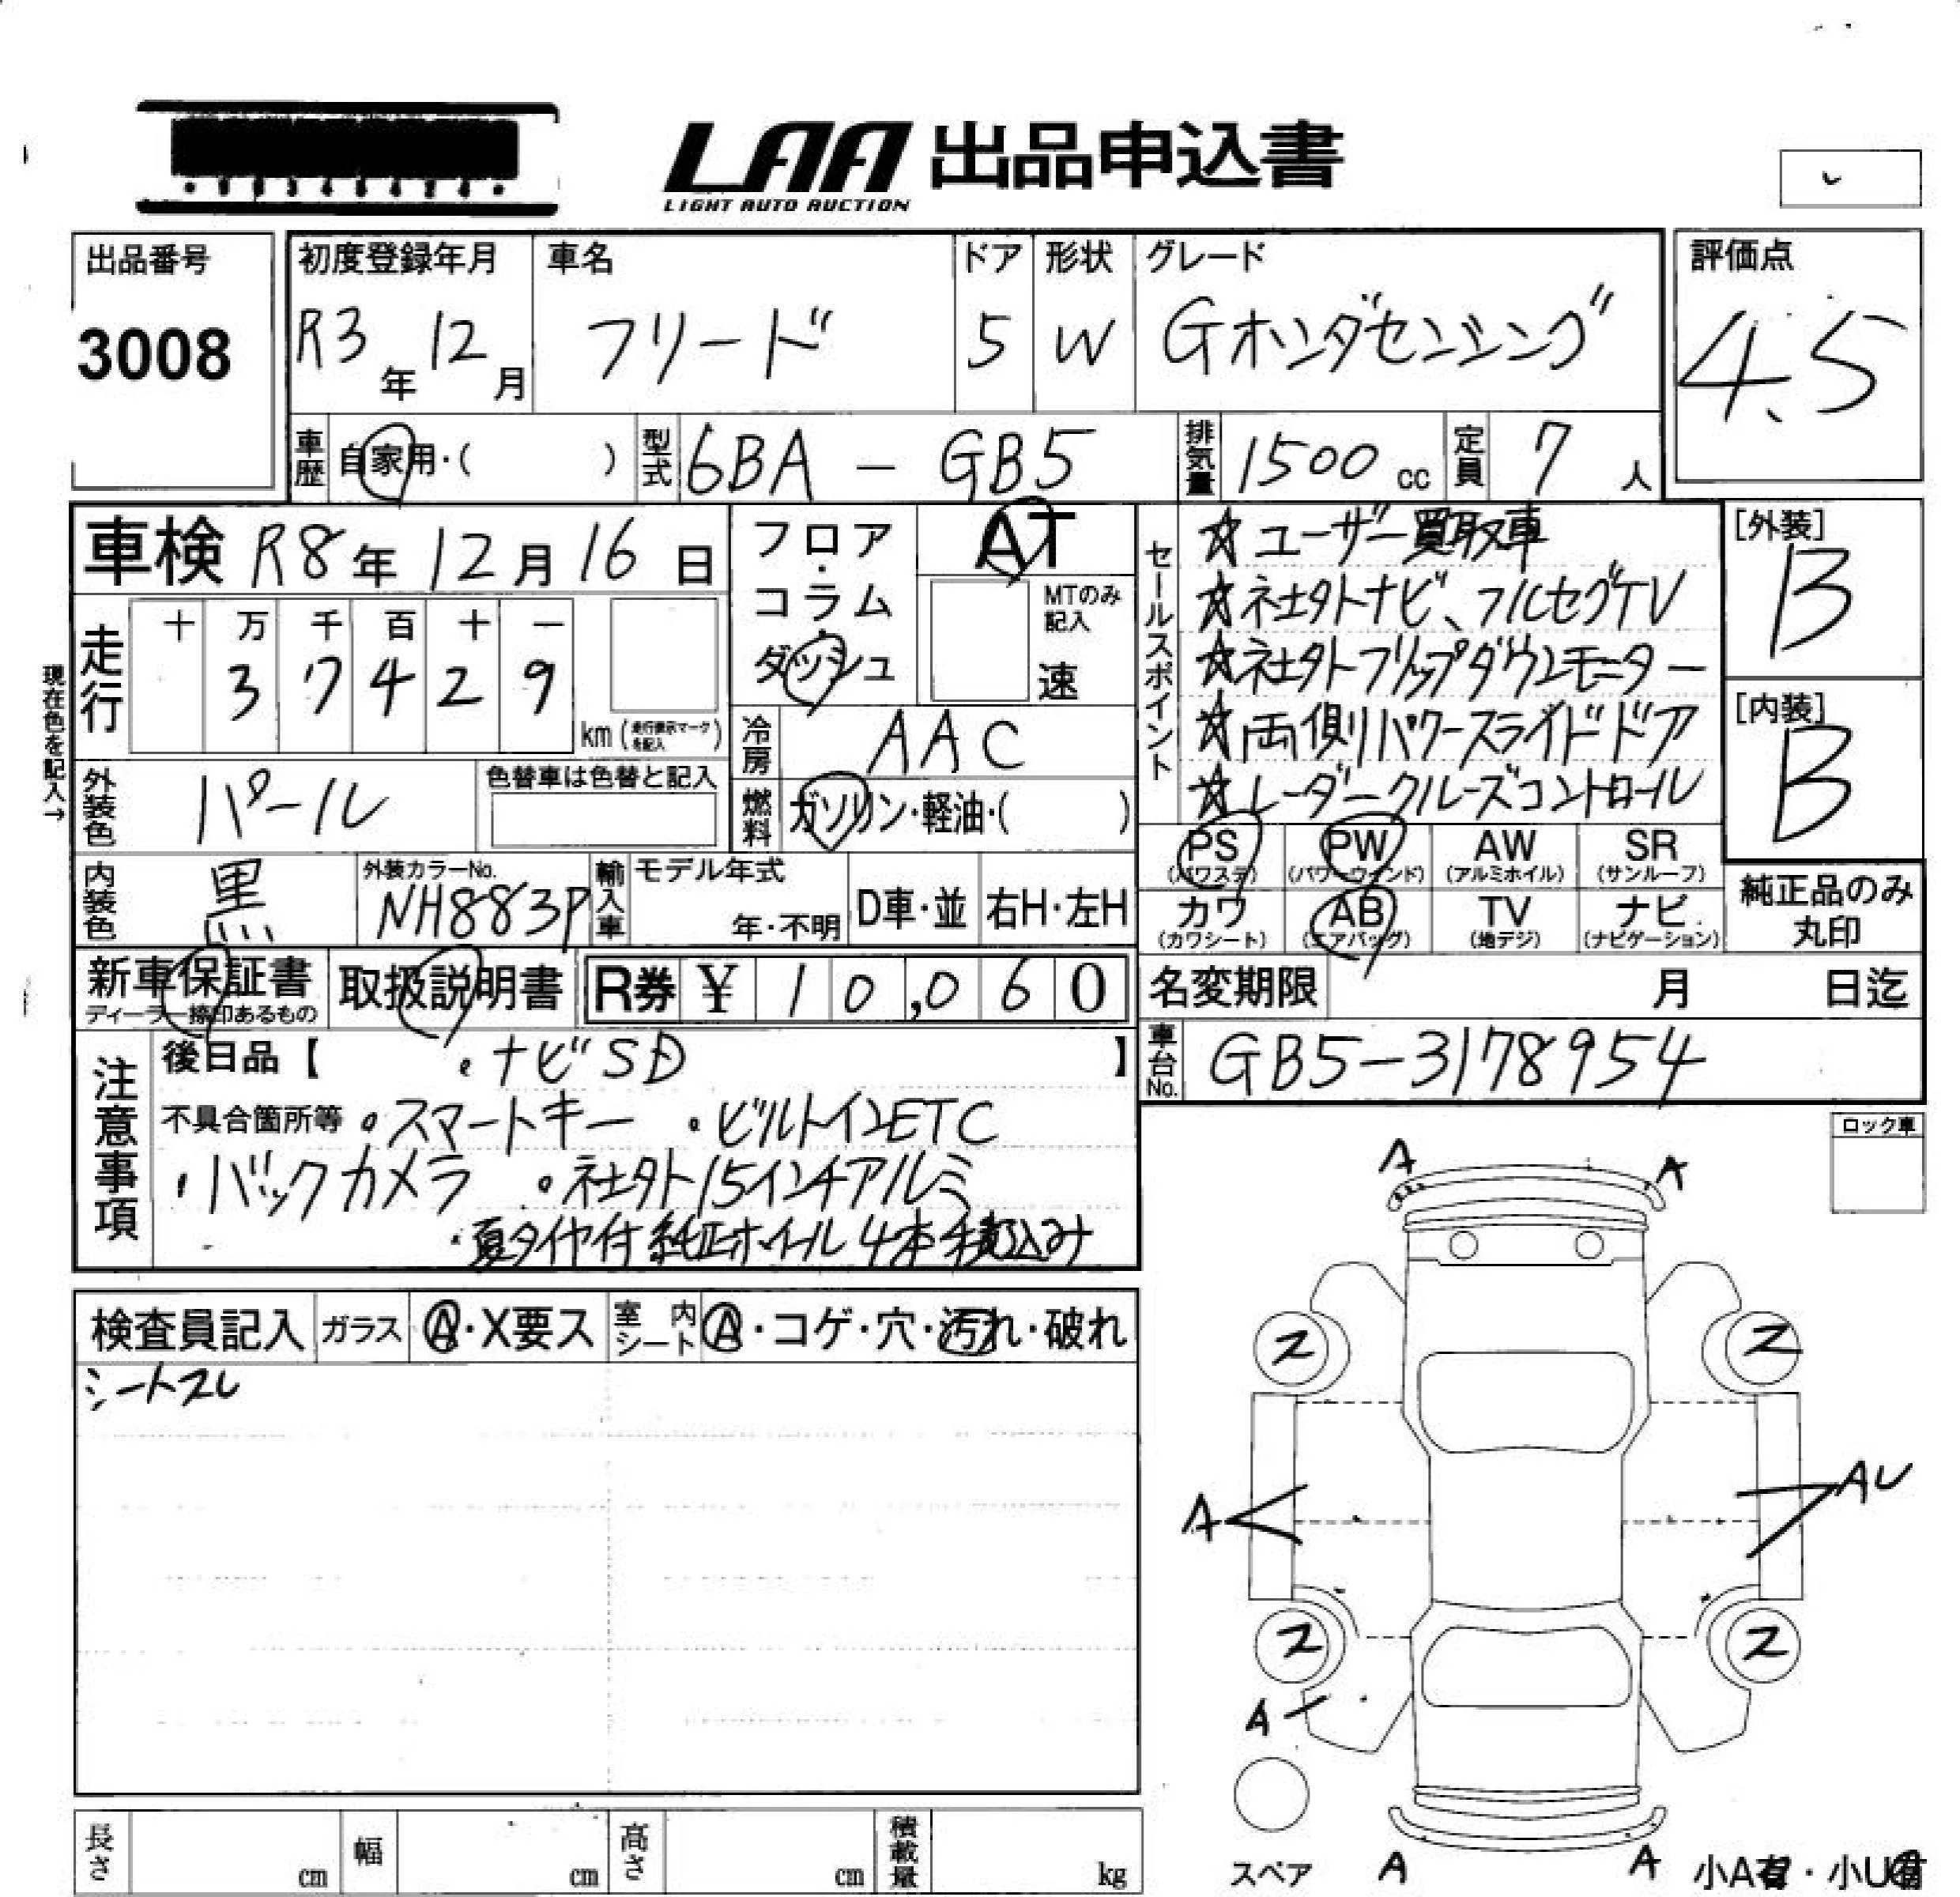 LAA 出品申込書
LIGHT AUTO AUCTION
出品番号
3008
初度登録年月
R3年 12月
車名
フリード
ドア
5
形状
W
グレード
Gホンダセンシング
評価点
4.5
車歴 自家用・( )
型式 6BA - GB5
排気量 1500 cc
定員 7 人
車検 R8年 12月 16日
走行
十 万 千 百 十 一
3 7 4 2 9
km (走行表示マークを記入)
現在色を記入→
外装色 パール
色替車は色替と記入
内装色 黒
外装カラーNo.
NH883P
フロア・コラム・ダッシュ
AT
MTのみ記入
速
冷房 AAC
燃料 ガソリン・軽油・( )
輸入車 モデル年式
年・不明
D車・並
右H・左H
セールスポイント
☆ユーザー買取車
☆社外ナビ、フルセグTV
☆社外フリップダウンモニター
☆両側パワースライドドア
☆レーダークルーズコントロール
[外装]
B
[内装]
B
PS (パワステ) PW (パワーウィンド) AW (アルミホイル) SR (サンルーフ)
カワ (カワシート) AB (エアバッグ) TV (地デジ) ナビ (ナビゲーション)
純正品のみ丸印
新車保証書
ディーラー捺印あるもの
取扱説明書
R券 ¥ 10,060
名変期限 月 日迄
車台No. GB5-3178954
注意事項
後日品【 ・ナビSD 】
不具合箇所等 ・スマートキー ・ビルトインETC
・バックカメラ ・社外15インチアルミ
・夏タイヤ付純正ホイール4本積込み
ロック車
検査員記入 ガラス A・X要ス 室内シート A・コゲ・穴・汚れ・破れ
シートスレ
A A
ス ス
A AU
ス ス
A
スペア
A A
小A有・小U有
長さ cm 幅 cm 高さ cm 積載量 kg